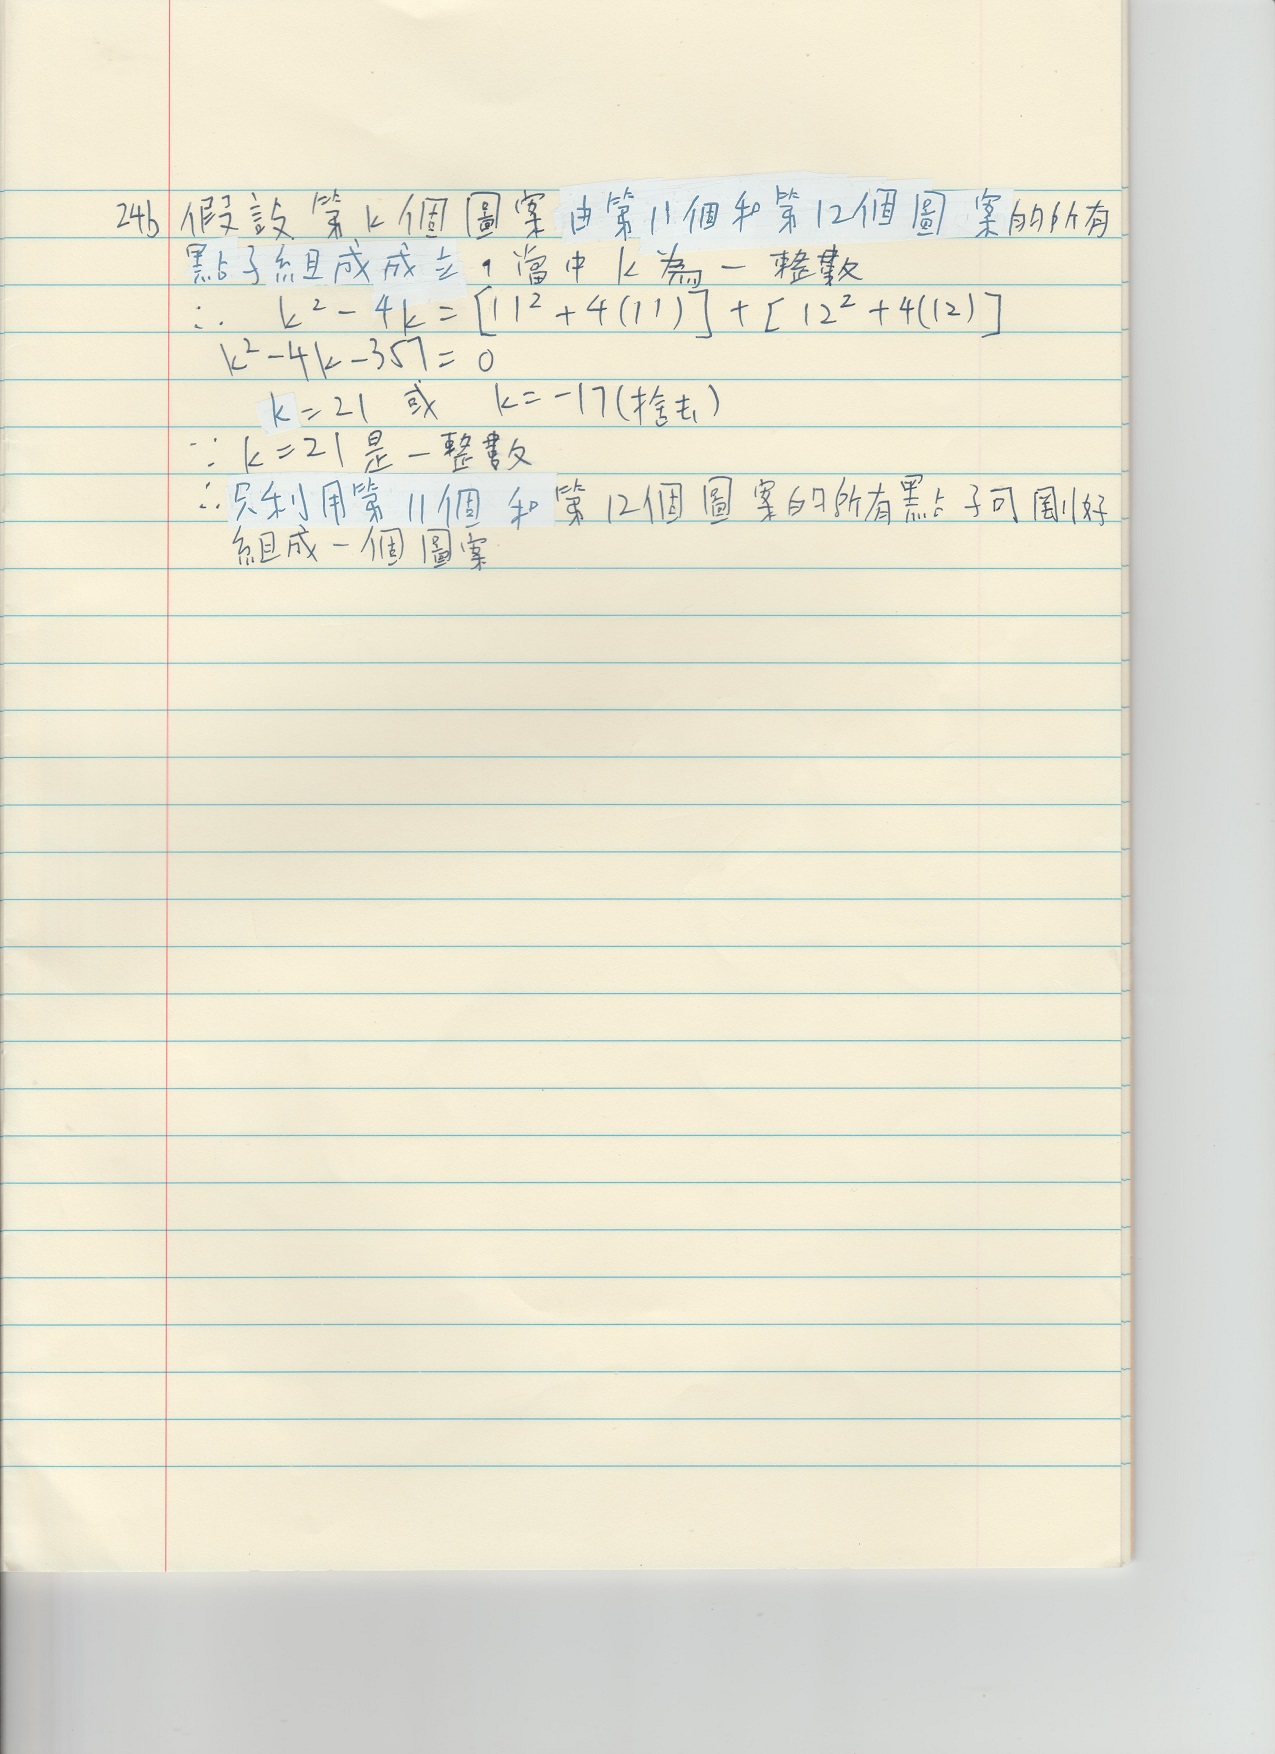 24b 假設第k個圖案由第11個和第12個圖案的所有
點子組成成立，當中k為一整數
∴ k² - 4k = [11² + 4(11)] + [12² + 4(12)]
k² - 4k - 357 = 0
k = 21 或 k = -17(捨去)
∵ k = 21 是一整數
∴ 只利用第11個和第12個圖案的所有點子可剛好
組成一個圖案